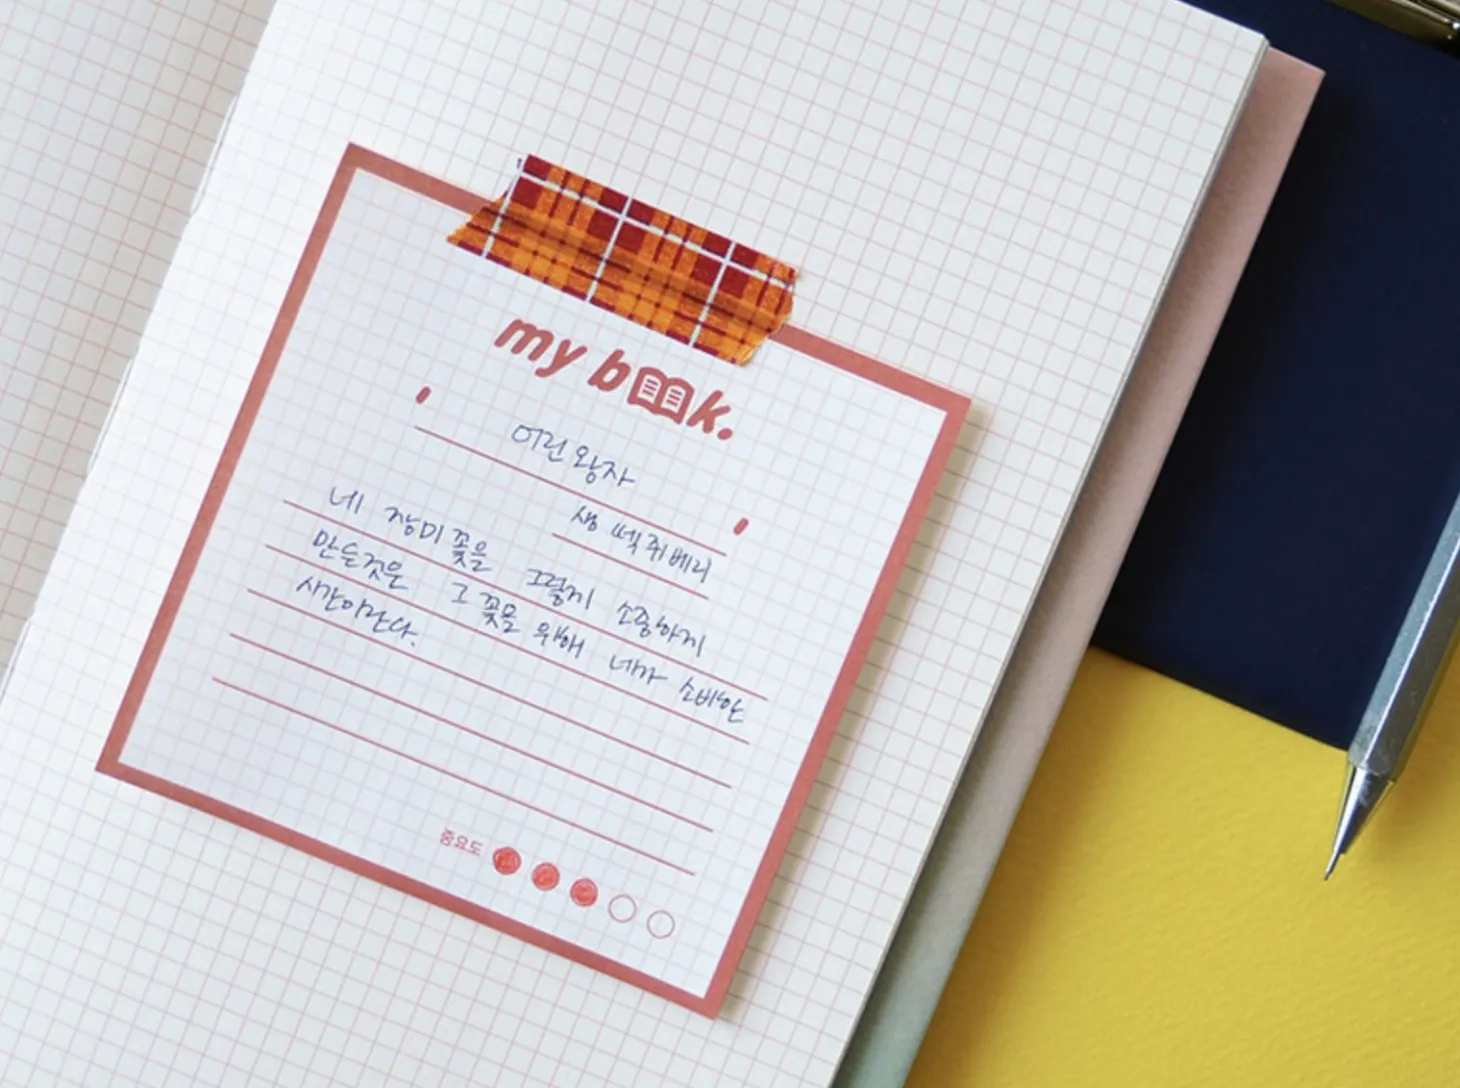 my book.
어린왕자
생떽쥐베리
네 장미꽃을 그렇게 소중하게
만든것은 그 꽃을 위해 네가 소비한
시간이란다.
중요도